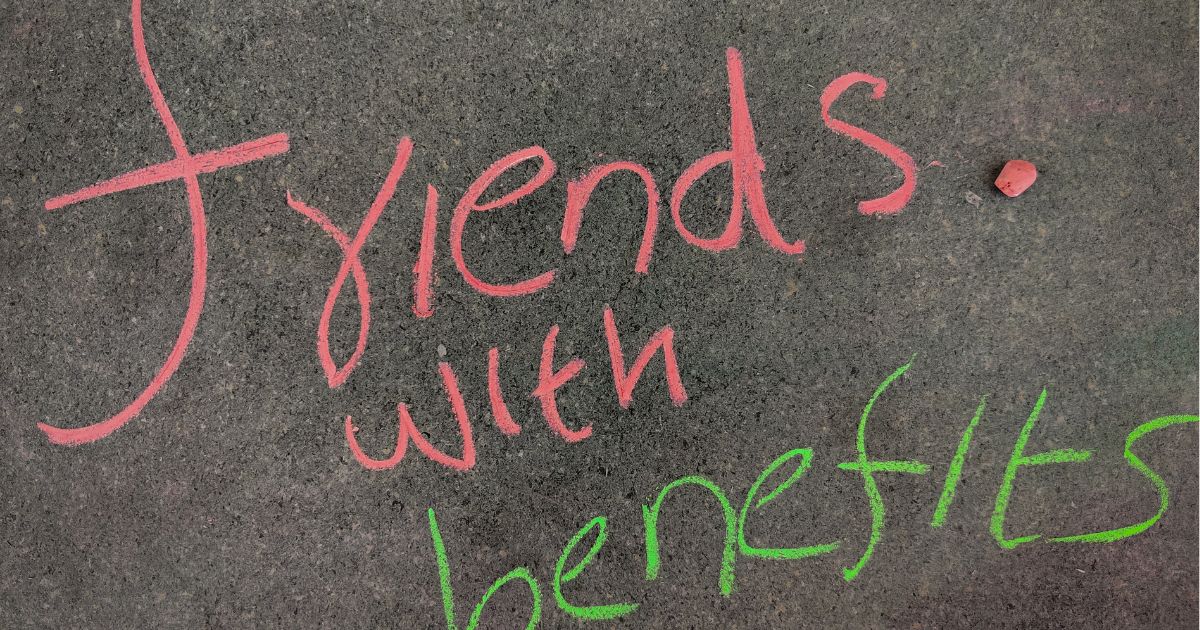 friends
with
benefits